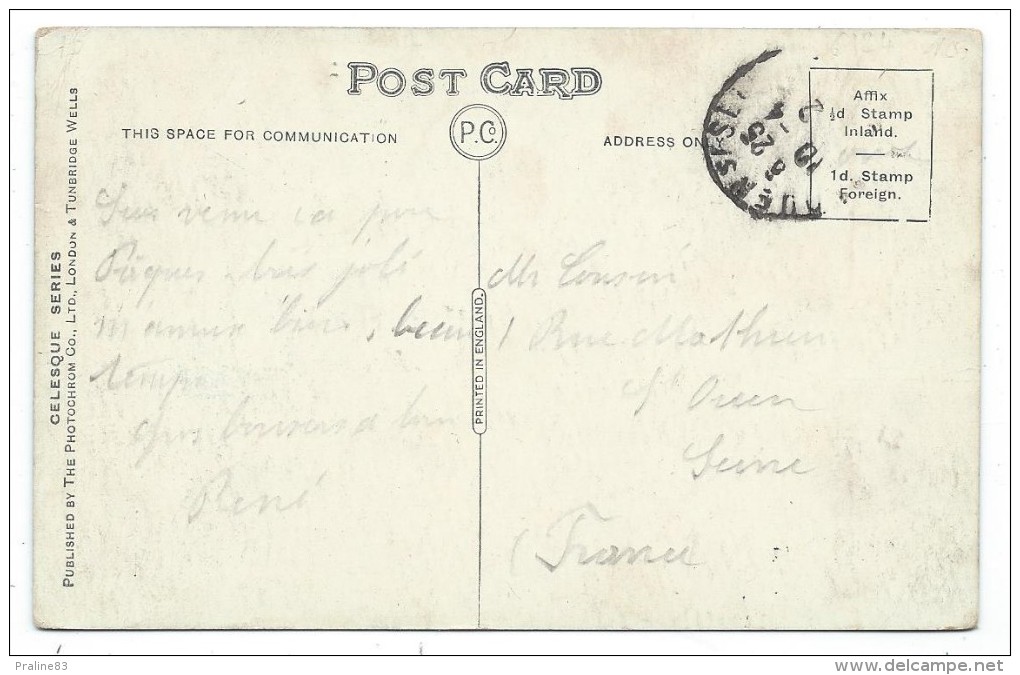 POST CARD
P.Cº
THIS SPACE FOR COMMUNICATION
ADDRESS ON
Affix
½d Stamp
Inland.
1d. Stamp
Foreign.
venu ici pour
Pâques. très joli
m'amuse bien, beau
temps
Gros baisers à tous
René
Mr Cousin
1 Rue Mathieu
St Ouen
Seine
(France
PRINTED IN ENGLAND.
CELESQUE SERIES
PUBLISHED BY THE PHOTOCHROM CO., LTD., LONDON & TUNBRIDGE WELLS
Praline83
www.delcampe.net